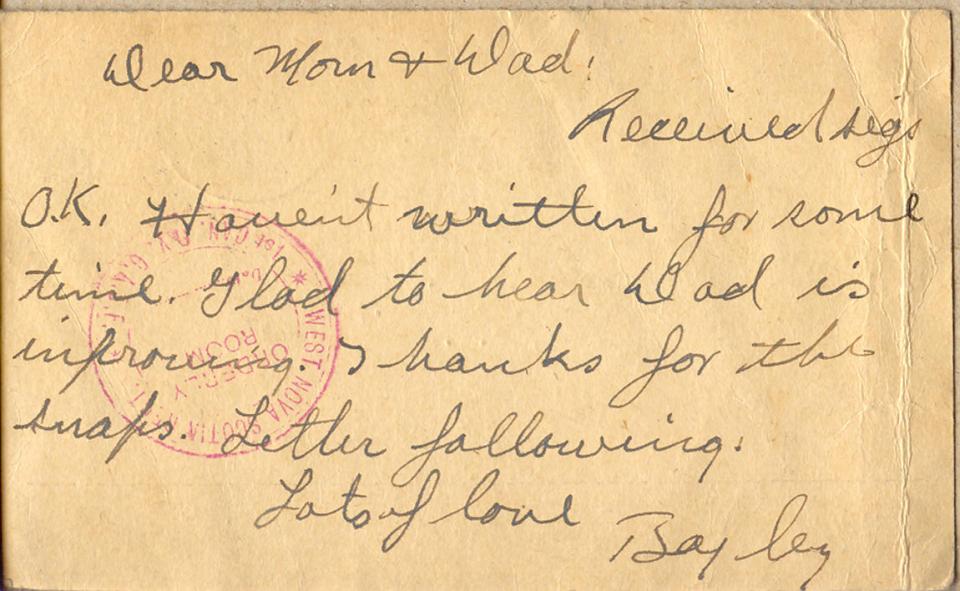 Dear Mom & Dad:
Received sigs
O.K. Haven't written for some
time. Glad to hear Dad is
improving. Thanks for the
snaps. Letter following.
Lots of love
Bayley
WEST NOVA SCOTIA
ORDERLY
ROOM